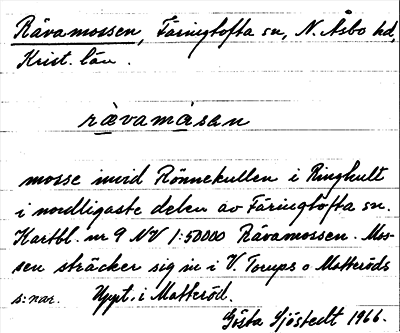 Rävamossen, Färingtofta sn, N. Åsbo hd,
Krist. län.
rävamåsan
mosse invid Rönnekullen i Ringhult
i nordligaste delen av Färingtofta sn.
Kartbl. nr 9 NV 1:50000 Rävamossen. Mos-
sen sträcker sig in i V. Torups o Matteröds
s:nar. Uppt. i Matteröd.
Gösta Sjöstedt 1966.